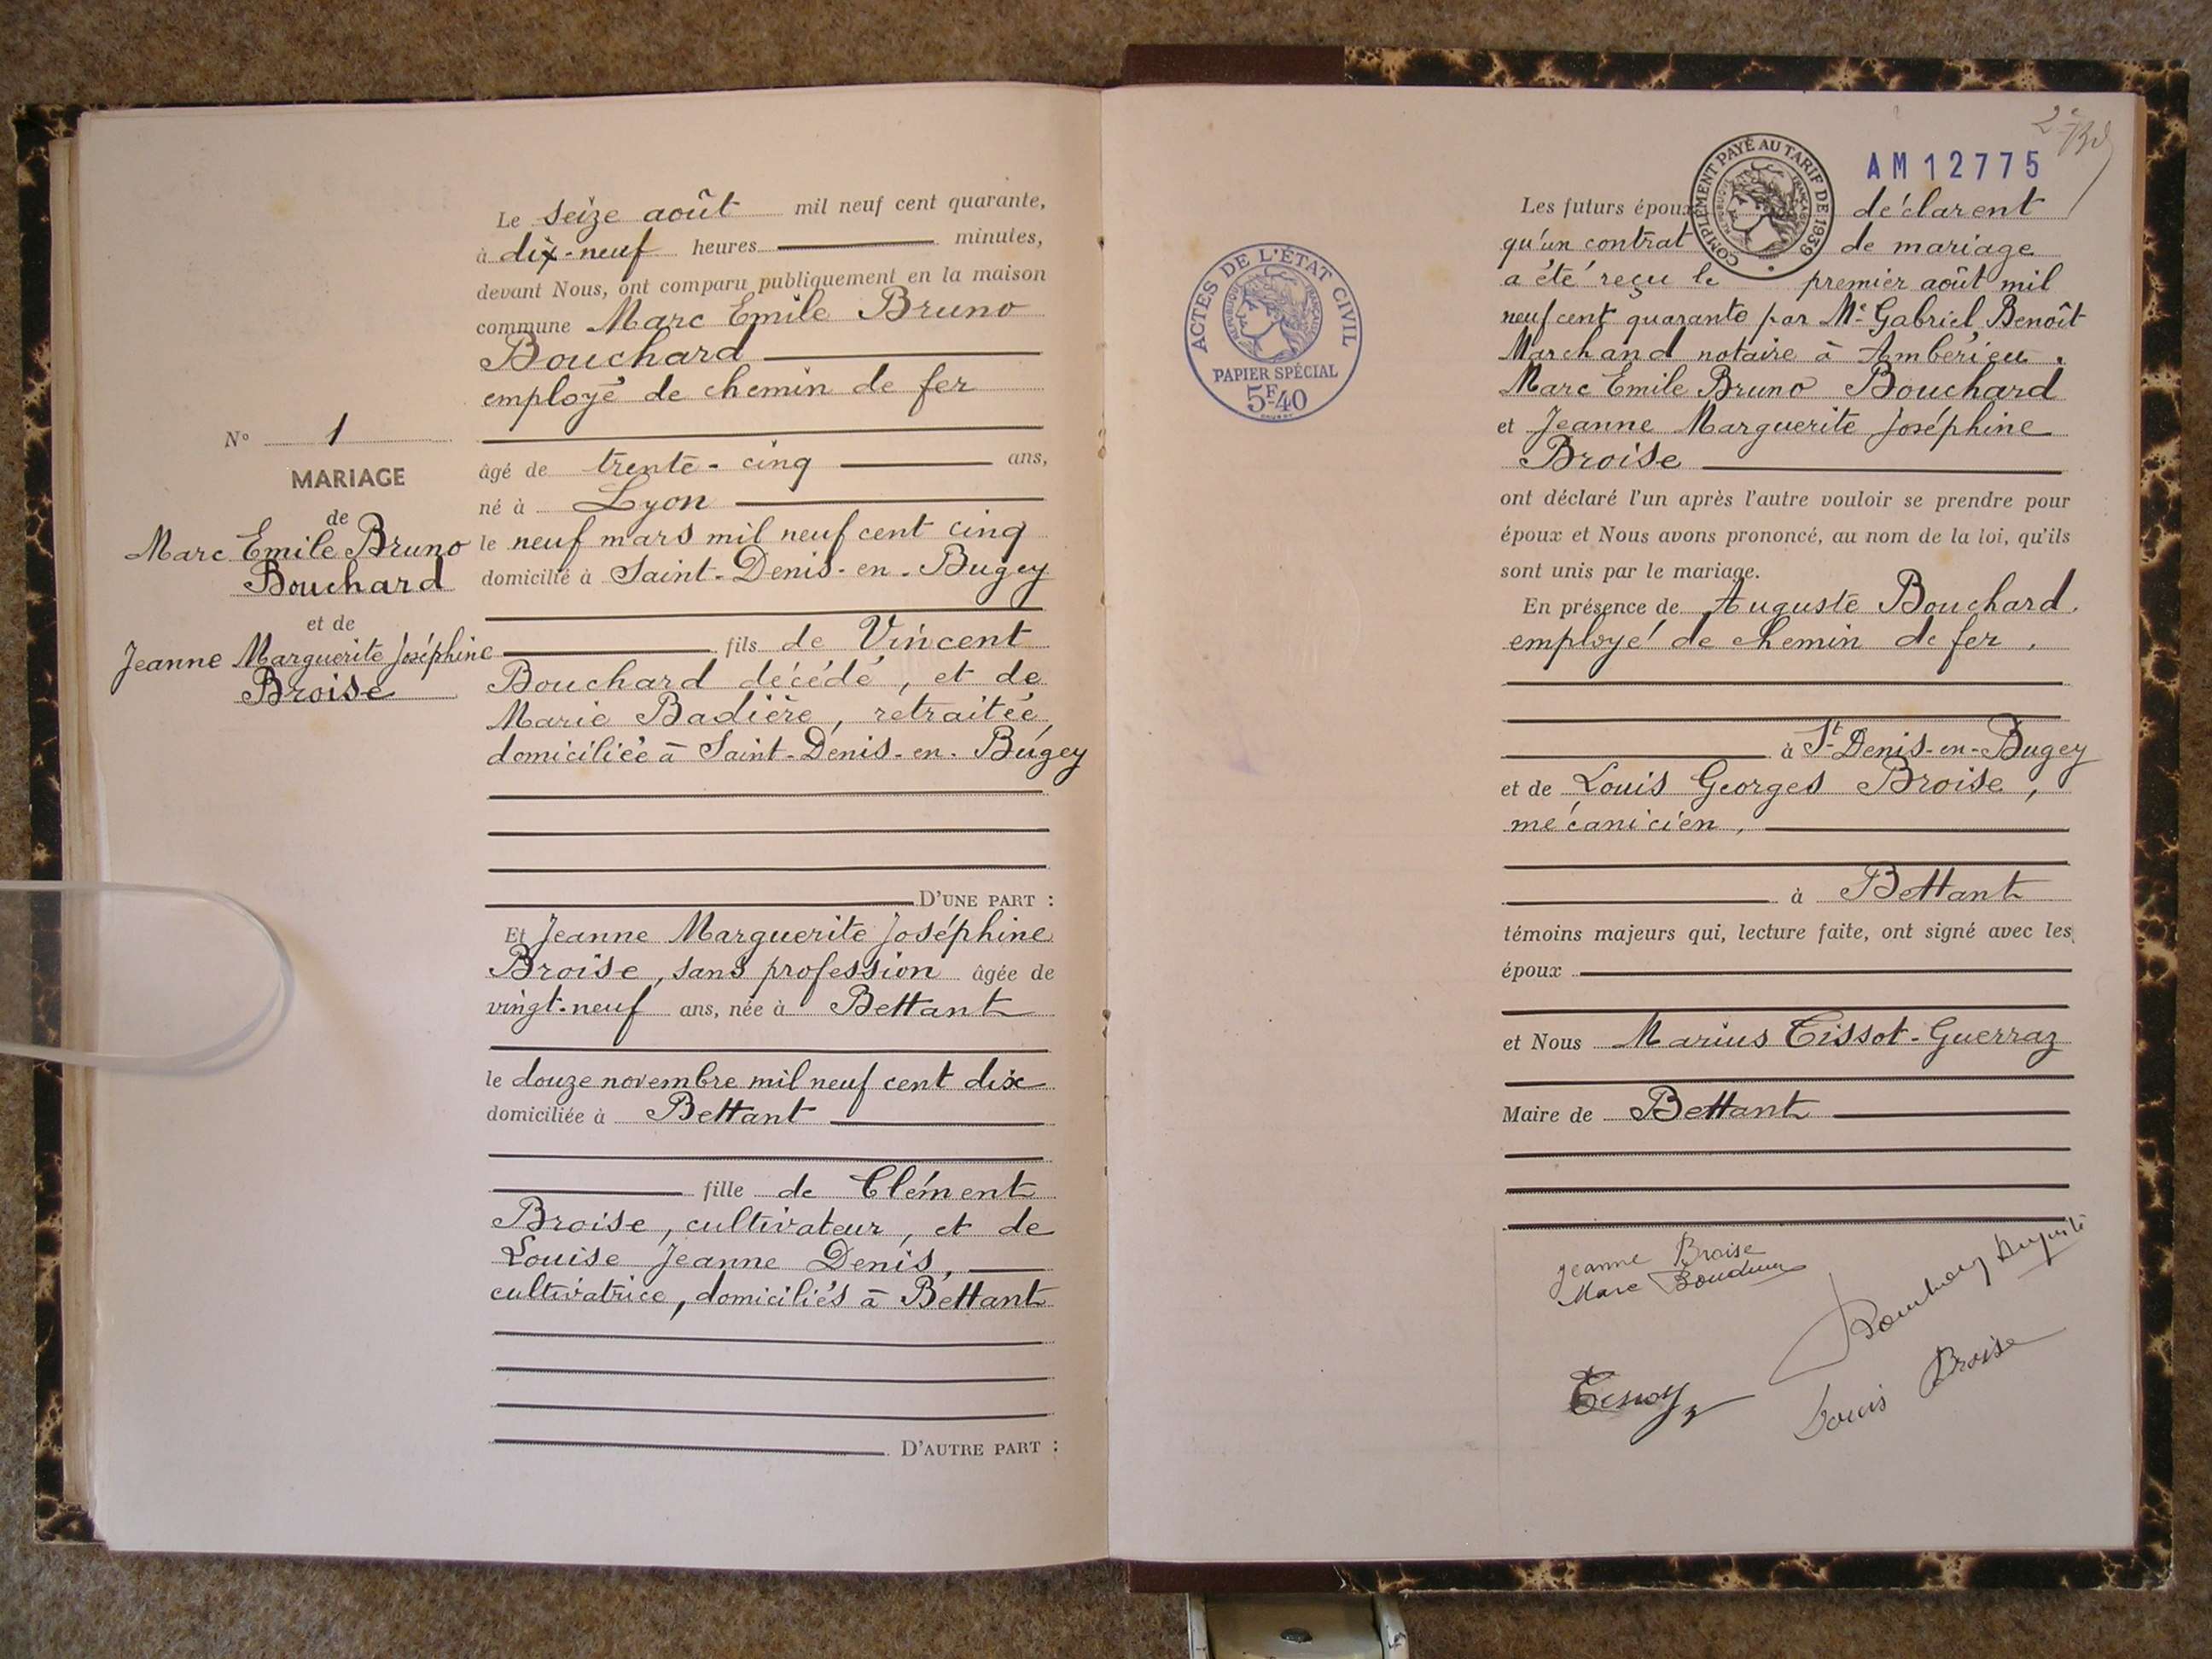 Le seize août mil neuf cent quarante,
à dix-neuf heures minutes,
devant Nous, ont comparu publiquement en la maison
commune Marc Emile Bruno
Bouchard
employé de chemin de fer
N° 1
MARIAGE
de
Marc Emile Bruno
Bouchard
et de
Jeanne Marguerite Joséphine
Broise
âgé de trente-cinq ans,
né à Lyon
le neuf mars mil neuf cent cinq
domicilié à Saint-Denis-en-Bugey
fils de Vincent
Bouchard décédé, et de
Marie Badière, retraitée,
domiciliée à Saint-Denis-en-Bugey
D'UNE PART :
Et Jeanne Marguerite Joséphine
Broise, sans profession âgée de
vingt-neuf ans, née à Bettant
le douze novembre mil neuf cent dix
domiciliée à Bettant
fille de Clément
Broise, cultivateur, et de
Louise Jeanne Denis,
cultivatrice, domiciliés à Bettant
D'AUTRE PART :
ACTES DE L'ÉTAT CIVIL
RÉPUBLIQUE FRANÇAISE
PAPIER SPÉCIAL
5F.40
2e
COMPLÉMENT PAYÉ AU TARIF DE 1939
RÉPUBLIQUE FRANÇAISE
AM12775
Les futurs époux déclarent
qu'un contrat de mariage
a été reçu le premier août mil
neuf cent quarante par Me Gabriel Benoît
Marchand notaire à Ambérieu.
Marc Emile Bruno Bouchard
et Jeanne Marguerite Joséphine
Broise
ont déclaré l'un après l'autre vouloir se prendre pour
époux et Nous avons prononcé, au nom de la loi, qu'ils
sont unis par le mariage.
En présence de Auguste Bouchard,
employé de chemin de fer,
à St-Denis-en-Bugey
et de Louis Georges Broise,
mécanicien,
à Bettant
témoins majeurs qui, lecture faite, ont signé avec les
époux
et Nous Marius Tissot-Guerraz
Maire de Bettant
Jeanne Broise
Marc
Louis Broise